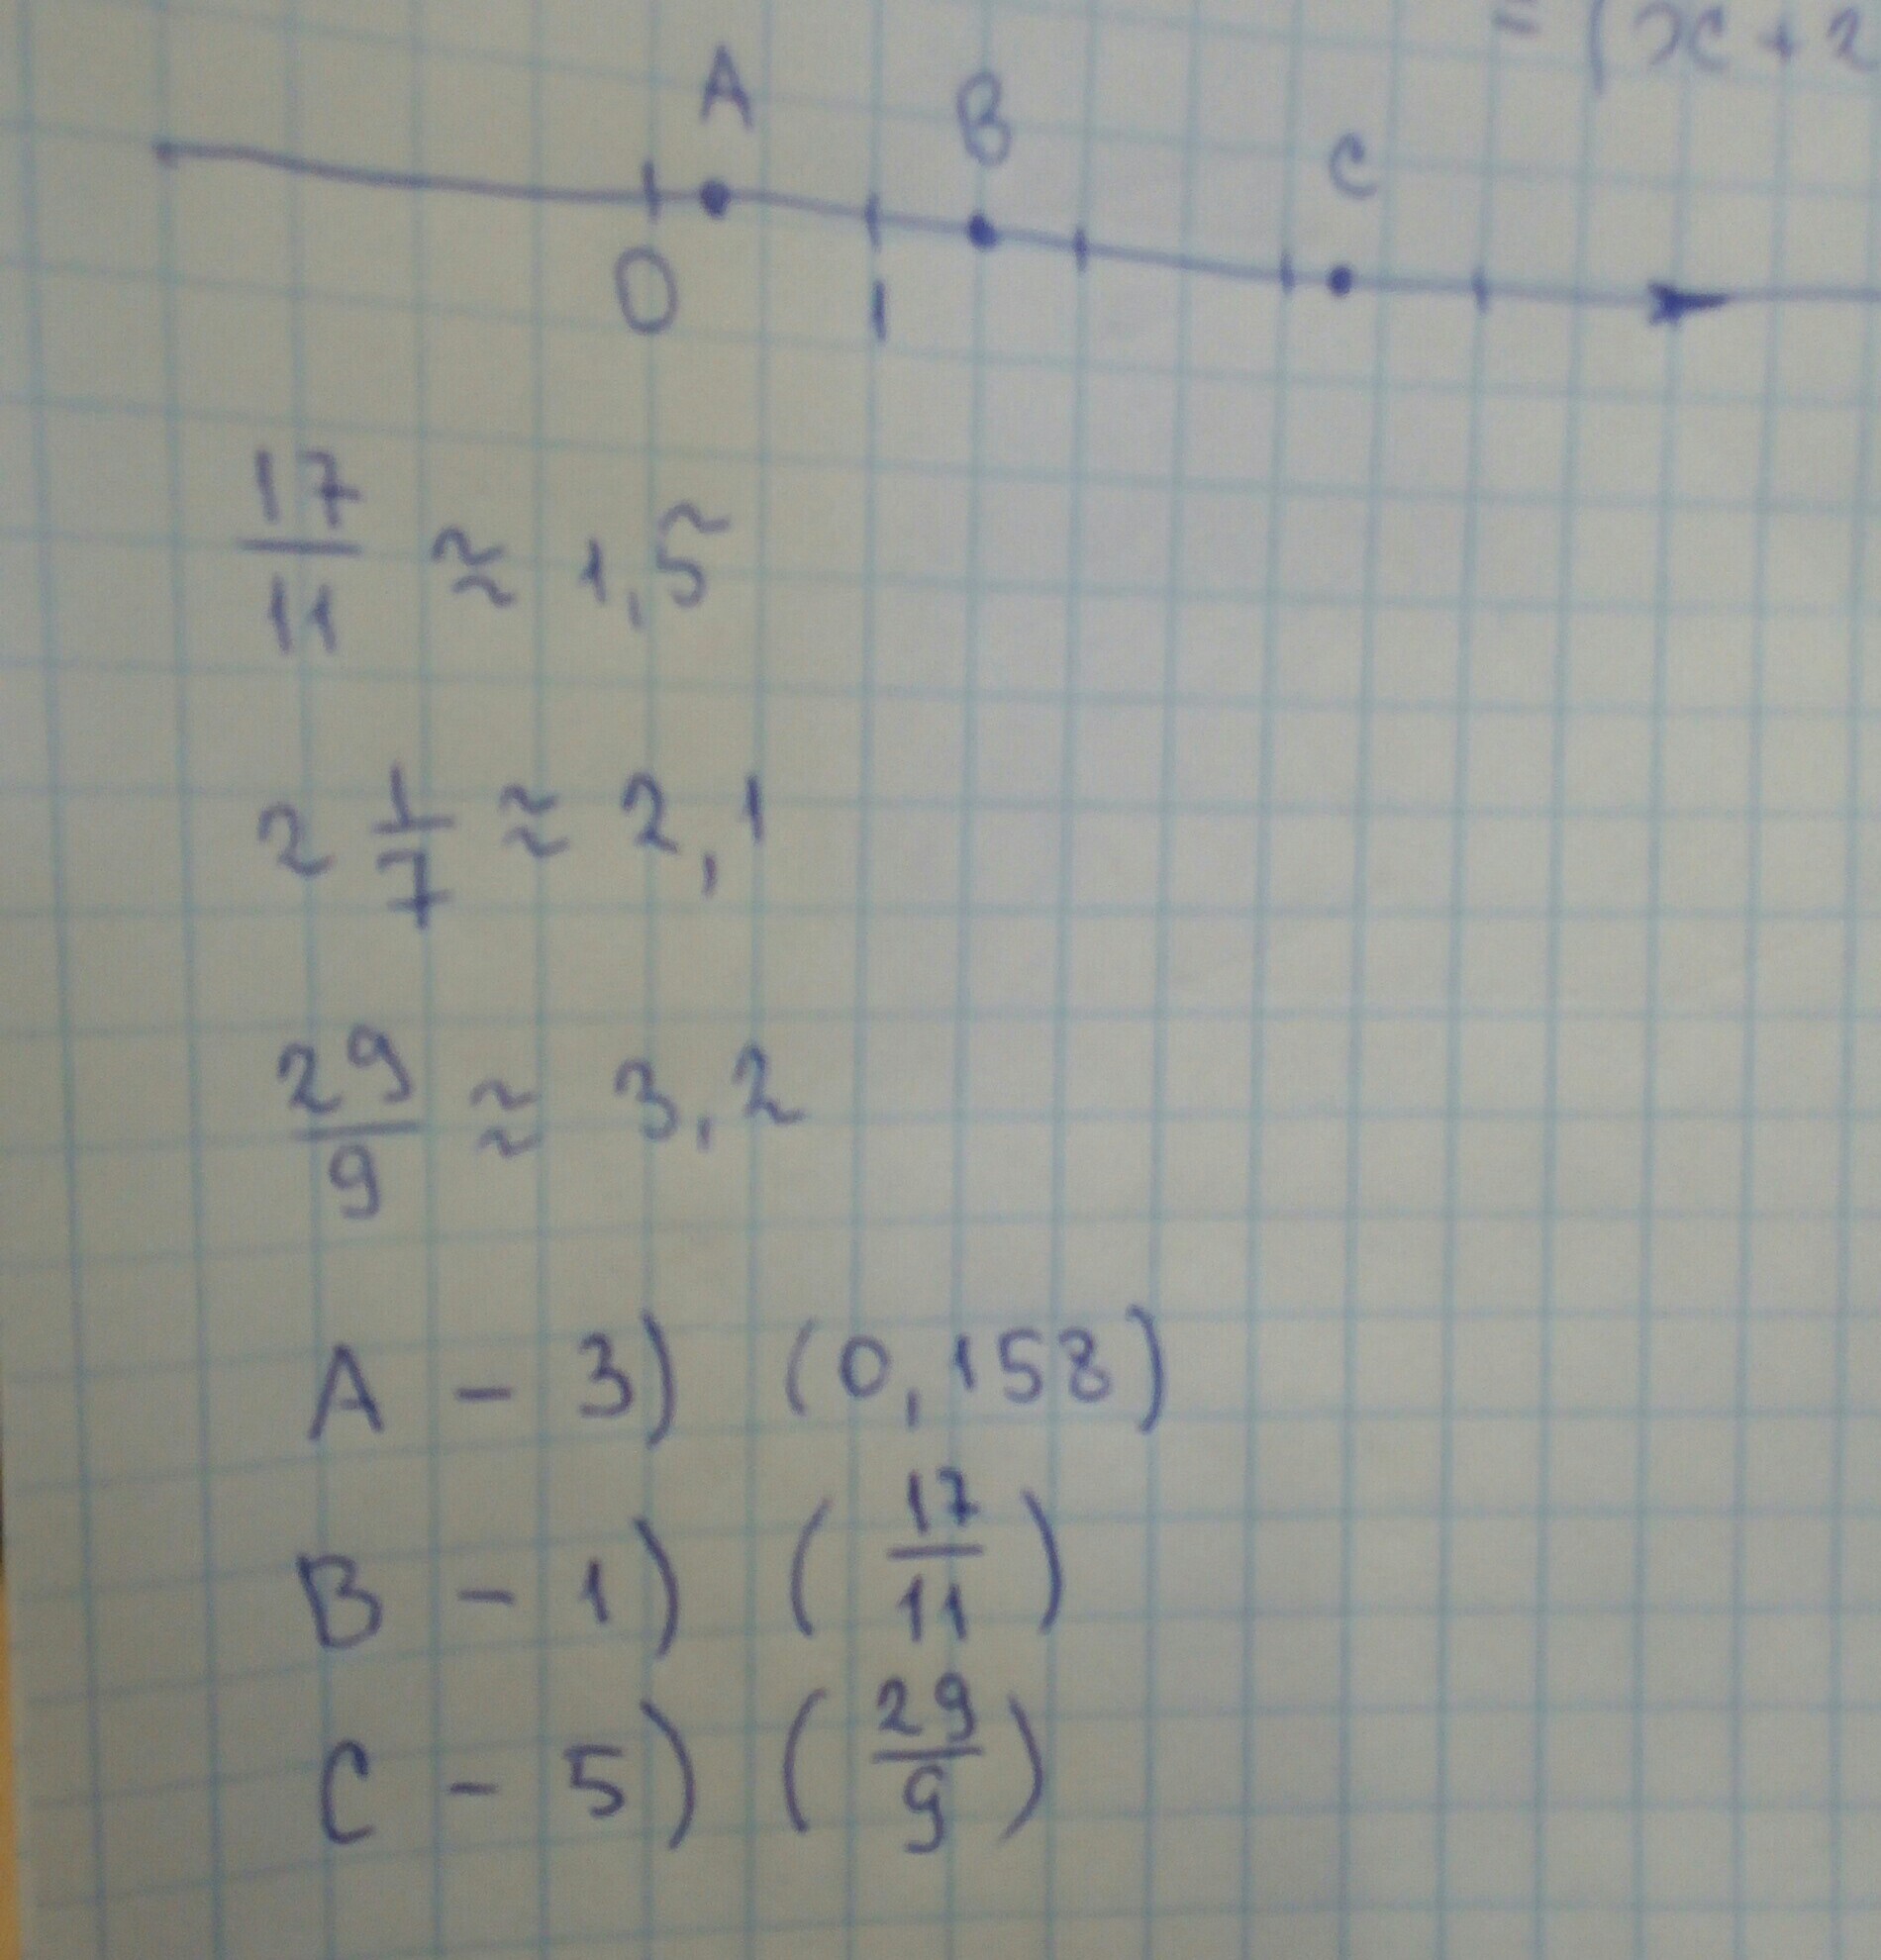 = (x + 2
A B C
0 1
17/11 ≈ 1,5
2 1/7 ≈ 2,1
29/9 ≈ 3,2
A - 3) (0,158)
B - 1) (17/11)
C - 5) (29/9)